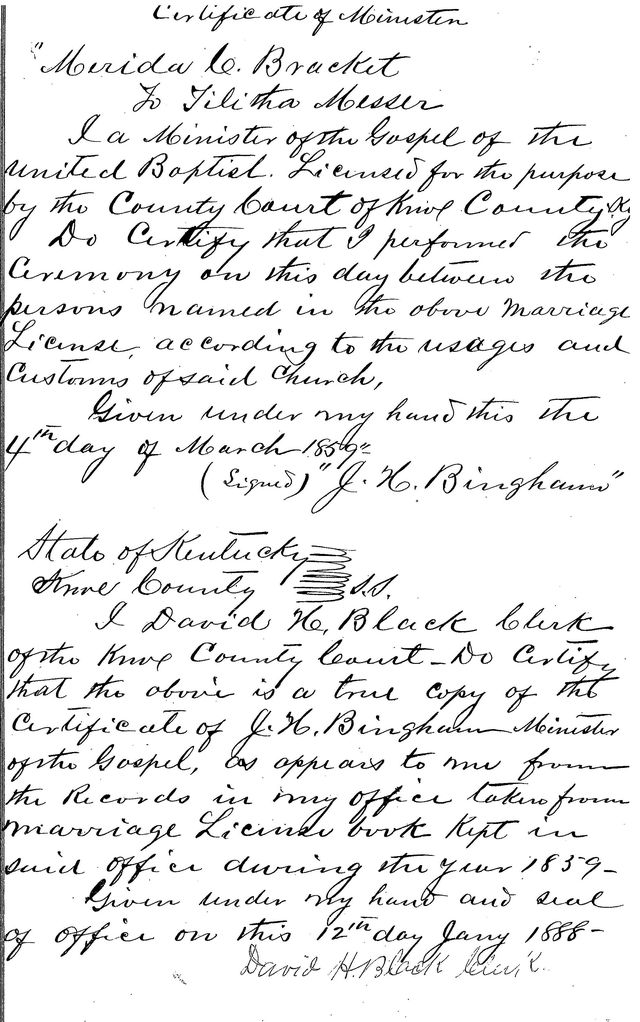 Certificate of Minister
"Merida C. Bracket
To Tilitha Messer
I a Minister of the Gospel of the
united Baptist. Licensed for the purpose
by the County Court of Knox County Ky
Do Certify that I performed the
Ceremony on this day between the
persons named in the above Marriage
License, according to the usages and
Customs of said Church,
Given under my hand this the
4th day of March 1859"
(Signed) "J. H. Bingham"
State of Kentucky
Knox County S.S.
I David H. Black Clerk
of the Knox County Court - Do Certify
that the above is a true copy of the
Certificate of J. H. Bingham Minister
of the Gospel, as appears to me from
the Records in my office taken from
Marriage License book Kept in
said office during the year 1859-
Given under my hand and seal
of office on this 12th day Jany 1888-
David H. Black Clerk.